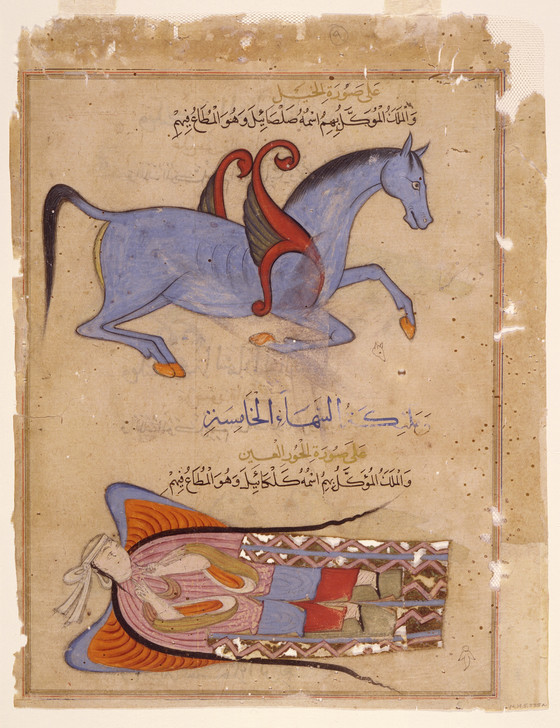 على صورة الخيل
والملك الموكل بهم اسمه صلصائيل وهو المطاع فيهم
السماء الخامسة
على صورة الحور العين
والملك الموكل بهم اسمه كلكائيل وهو المطاع فيهم